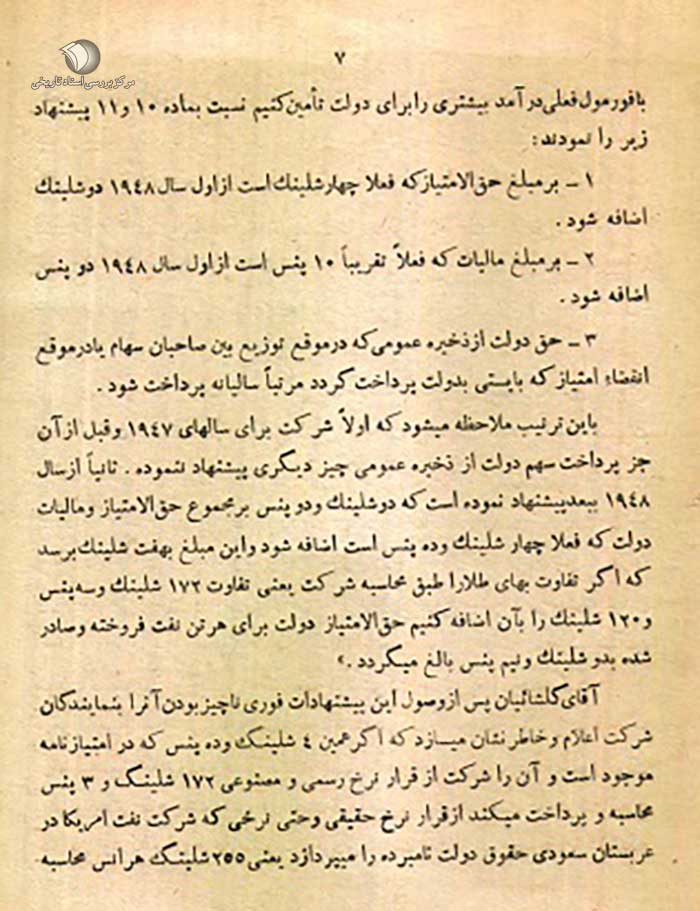 مرکز بررسی اسناد تاریخی
۷
بافورمول فعلی درآمد بیشتری را برای دولت تأمین کنیم نسبت بماده ۱۰ و ۱۱ پیشنهاد
زیر را نمودند:
۱ ـ بر مبلغ حق‌الامتیاز که فعلا چهار شلینك است از اول سال ۱۹۴۸ دو شلینك
اضافه شود .
۲ ـ بر مبلغ مالیات که فعلاً تقریباً ۱۰ پنس است از اول سال ۱۹۴۸ دو پنس
اضافه شود .
۳ ـ حق دولت از ذخیره عمومی که در موقع توزیع بین صاحبان سهام یا در موقع
انقضاء امتیاز که بایستی بدولت پرداخت گردد مرتباً سالیانه پرداخت شود .
باین ترتیب ملاحظه میشود که اولاً شرکت برای سالهای ۱۹۴۷ و قبل از آن
جز پرداخت سهم دولت از ذخیره عمومی چیز دیگری پیشنهاد ننموده . ثانیاً از سال
۱۹۴۸ ببعد پیشنهاد نموده است که دو شلینك و دو پنس بر مجموع حق‌الامتیاز و مالیات
دولت که فعلا چهار شلینك و ده پنس است اضافه شود و این مبلغ بهفت شلینك برسد
که اگر تفاوت بهای طلا را طبق محاسبه شرکت یعنی تفاوت ۱۷۲ شلینك و سه پنس
و ۱۲۰ شلینك را بآن اضافه کنیم حق‌الامتیاز دولت برای هر تن نفت فروخته و صادر
شده بدو شلینك و نیم پنس بالغ میگردد .»
آقای گلشائیان پس از وصول این پیشنهادات فوری ناچیز بودن آنرا بنمایندگان
شرکت اعلام و خاطر نشان میسازد که اگر همین ٤ شلینگ وده پنس که در امتیازنامه
موجود است و آن را شرکت از قرار نرخ رسمی و مصنوعی ۱۷۲ شلینگ و ۳ پنس
محاسبه و پرداخت میکند از قرار نرخ حقیقی وحتی نرخی که شرکت نفت امریکا در
عربستان سعودی حقوق دولت نامبرده را میپردازد یعنی ۲٥٥ شلینگ هر انس محاسبه